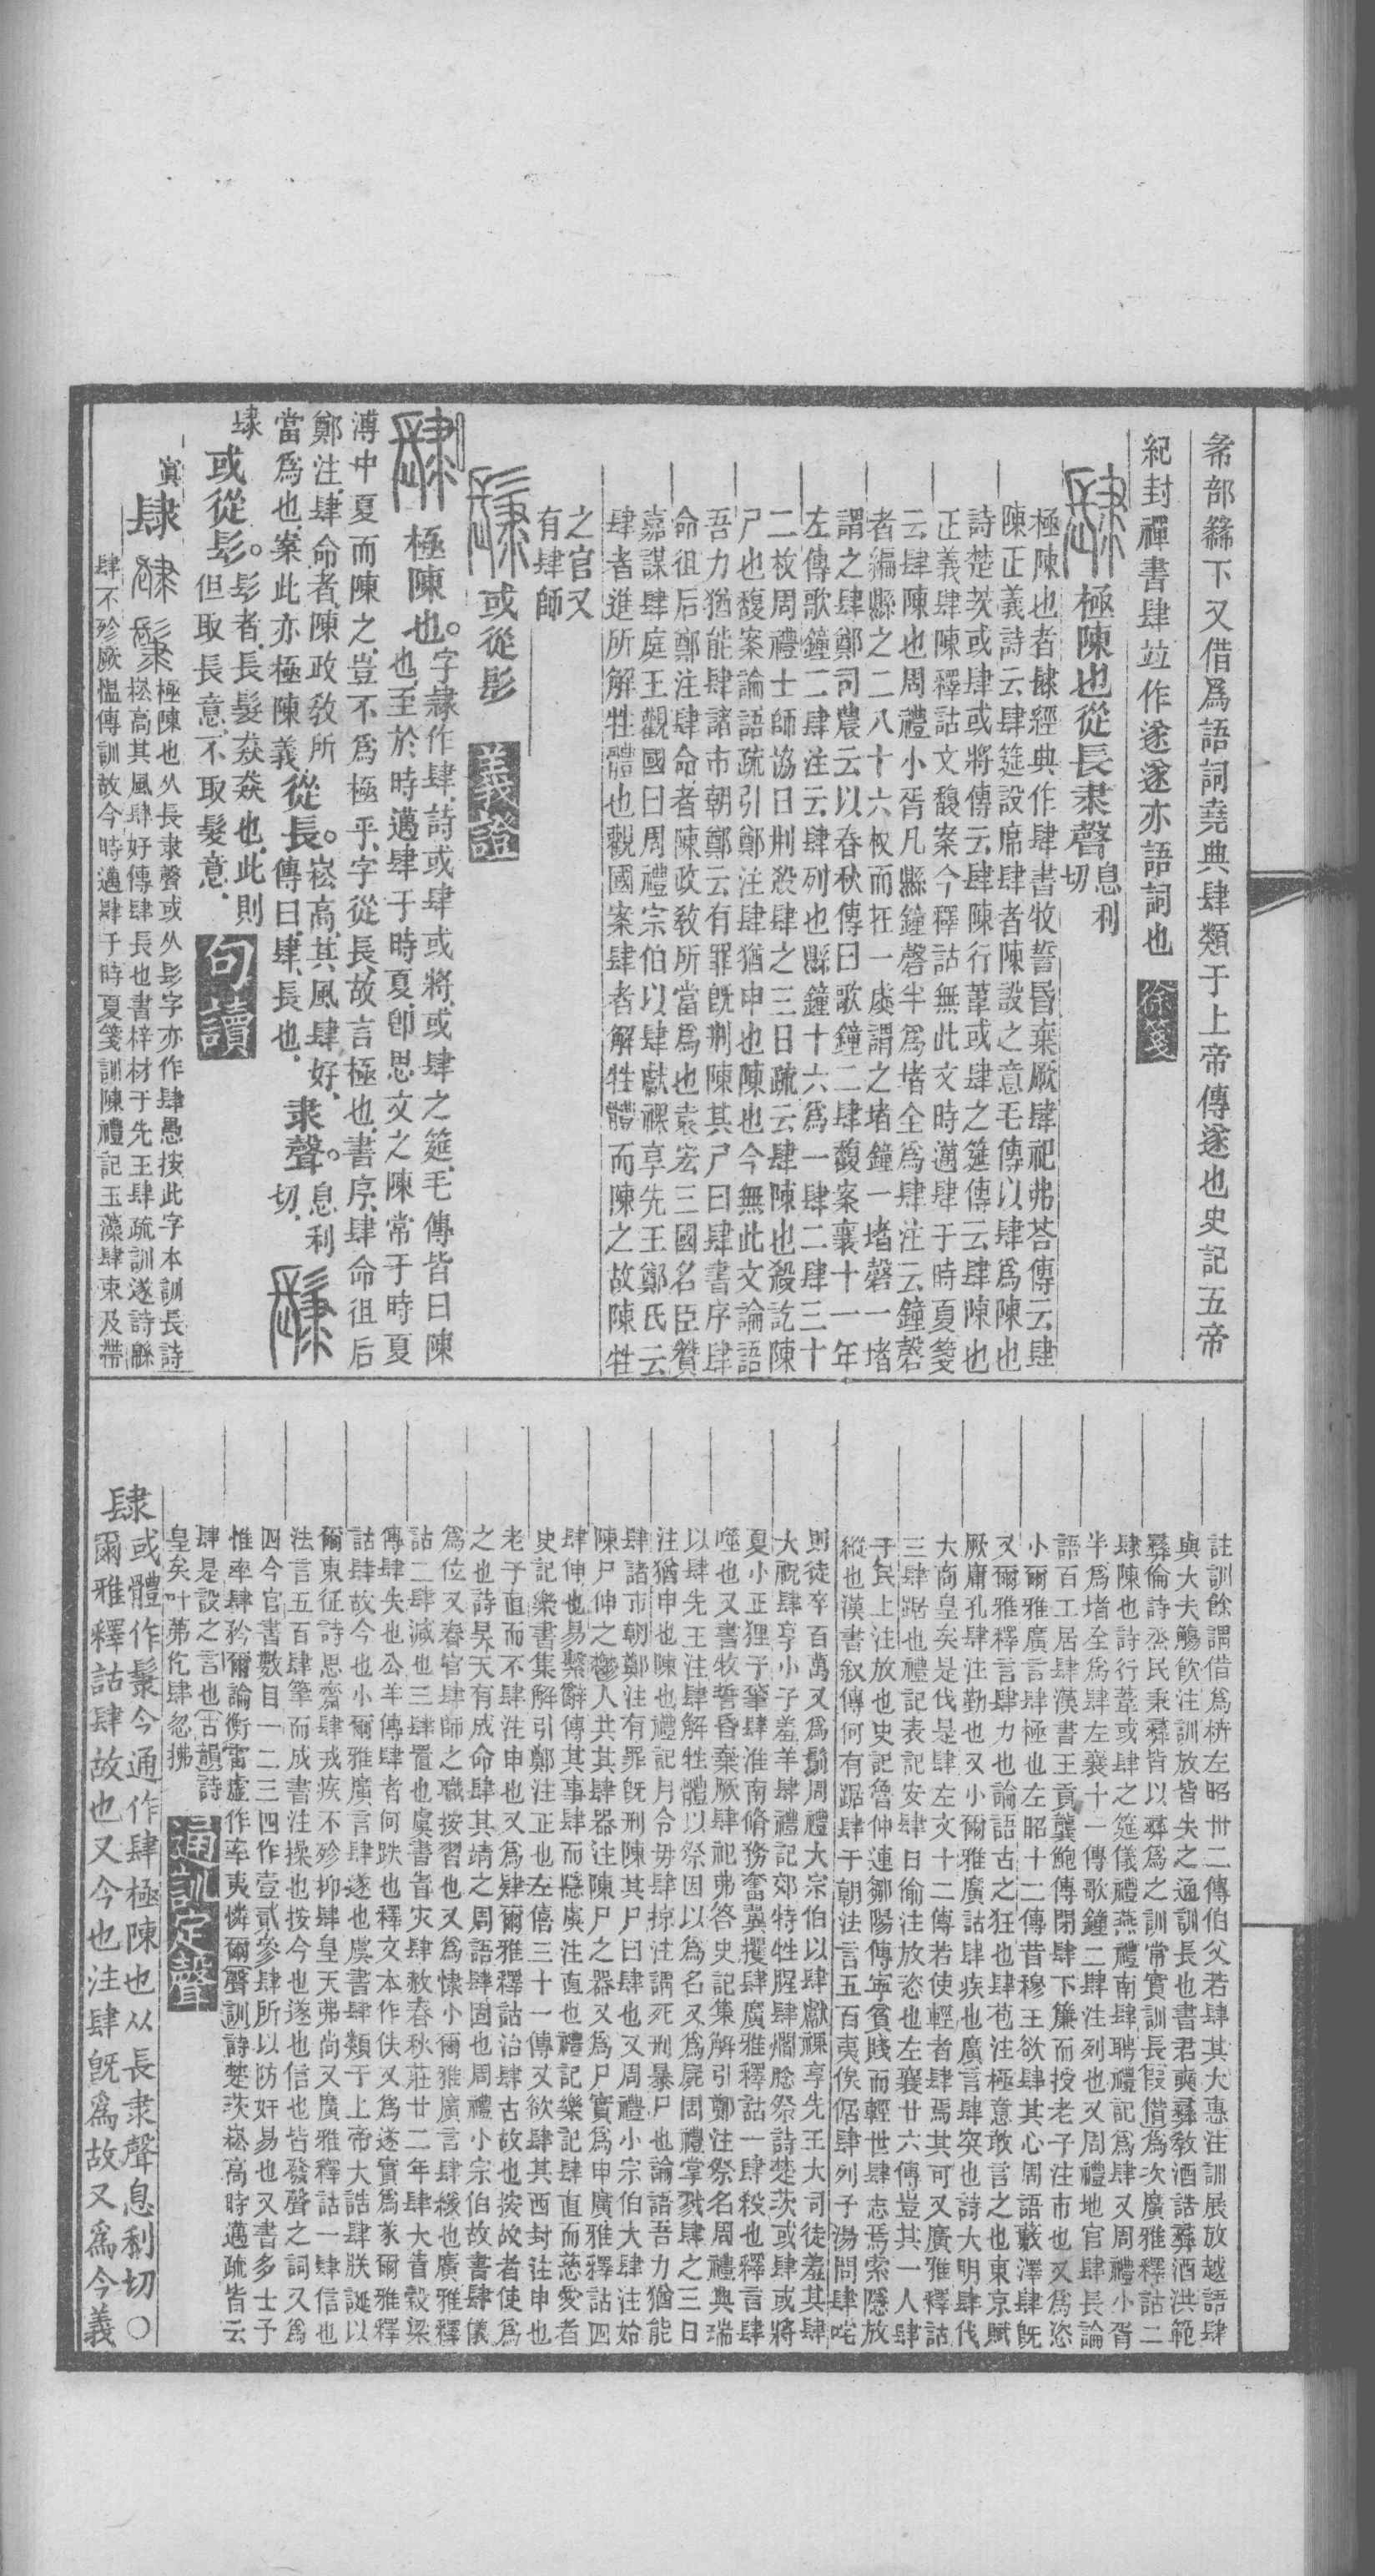 希部䋣下又借爲語詞堯典肆類于上帝傳遂也史記五帝
紀封禪書肆竝作遂遂亦語詞也 徐箋
極陳也從長隶聲息利切
極陳也者肆經典作肆書牧誓昬棄厥肆祀弗荅傳云肆
陳正義詩云肆筵設席肆者陳設之意毛傳以肆爲陳也
詩楚茨或肆或將傳云肆陳行葦或肆之筵傳云肆陳也
正義肆陳釋詁文馥案今釋詁無此文時邁肆于時夏箋
云肆陳也周禮小胥凡縣鐘磬半爲堵全爲肆注云鐘磬
者編縣之二八十六枚而在一虡謂之堵鐘一堵磬一堵
謂之肆鄭司農云以春秋傳曰歌鐘二肆馥案襄十一年
左傳歌鐘二肆注云肆列也縣鐘十六爲一肆二肆三十
二枚周禮士師協日刑殺肆之三日疏云肆陳也殺訖陳
尸也馥案論語疏引鄭注肆猶申也陳也今無此文論語
吾力猶能肆諸市朝鄭云有罪旣刑陳其尸曰肆書序肆
命徂后鄭注肆命者陳政敎所當爲也袁宏三國名臣贊
嘉謀肆庭王觀國曰周禮宗伯以肆獻祼享先王鄭氏云
肆者進所解牲體也觀國案肆者解牲體而陳之故陳牲
之官又
有肆師
或從髟 義證
極陳也。字隸作肆、詩或肆或將、或肆之筵、毛傳皆曰陳
也、至於時邁肆于時夏、卽思文之陳常于時夏
溥中夏而陳之、豈不爲極乎、字從長、故言極也、書序、肆命徂后
鄭注、肆命者、陳政敎所
當爲也、案此亦極陳義、從長。崧高、其風肆好、傳曰、肆、長也、隶聲。息利切、
或從髟。髟者、長髮猋猋也、此則但取長意、不取髮意、 句讀
肆 極陳也从長隶聲或从髟字亦作肆愚按此字本訓長詩
崧高其風肆好傳肆長也書梓材于先王肆疏訓遂詩緜
肆不殄厥愠傳訓故今時邁肆于時夏箋訓陳禮記玉藻肆束及帶
註訓餘謂借爲枿左昭卅二傳伯父若肆其大惠注訓展放越語肆
與大夫觴飲注訓放皆失之通訓長也書君奭彝敎酒誥彝酒洪範
彝倫詩烝民秉彝皆以彝爲之訓常實訓長叚借爲次廣雅釋詁二
肆陳也詩行葦或肆之筵儀禮燕禮南肆聘禮記爲肆又周禮小胥
半爲堵全爲肆左襄十一傳歌鐘二肆注列也又周禮地官肆長論
語百工居肆漢書王貢龔鮑傳閉肆下簾而授老子注市也又爲恣
小爾雅廣言肆極也左昭十二傳昔穆王欲肆其心周語藪澤肆旣
又爾雅釋言肆力也論語古之狂也肆苞注極意敢言之也東京賦
厥庸孔肆注勤也又小爾雅廣詁肆疾也廣言肆突也詩大明肆伐
大商皇矣是伐是肆左文十二傳若使輕者肆焉其可又廣雅釋詁
三肆踞也禮記表記安肆日偷注放恣也左襄廿六傳豈其一人肆
于民上注放也史記魯仲連鄒陽傳寧貧賤而輕世肆志焉索隱放
縱也漢書叙傳何有踞肆于朝法言五百夷俟倨肆列子湯問肆咤
則徒卒百萬又爲鬄周禮大宗伯以肆獻祼享先王大司徒羞其肆
大祝肆享小子羞羊肆禮記郊特牲腥肆爓腍祭詩楚茨或肆或將
夏小正狸子肇肆淮南脩務奮翼攫肆廣雅釋詁一肆殺也釋言肆
噬也又書牧誓昏棄厥肆祀弗答史記集解引鄭注祭名周禮典瑞
以肆先王注肆解牲體以祭因以爲名又爲屍周禮掌戮肆之三日
注猶申也陳也禮記月令毋肆掠注謂死刑暴尸也論語吾力猶能
肆諸市朝鄭注有罪旣刑陳其尸曰肆也又周禮小宗伯大肆注始
陳尸伸之鬱人共其肆器注陳尸之器又爲尸實爲申廣雅釋詁四
肆伸也易繫辭傳其事肆而隱虞注直也禮記樂記肆直而慈愛者
史記樂書集解引鄭注正也左僖三十一傳又欲肆其西封注申也
老子直而不肆注申也又爲肄爾雅釋詁治肆古故也按故者使爲
之也詩昊天有成命肆其靖之周語肆固也周禮小宗伯故書肆儀
爲位又春官肆師之職按習也又爲㥜小爾雅廣言肆緩也廣雅釋
詁二肆減也三肆置也虞書眚灾肆赦春秋莊廿二年肆大眚穀梁
傳肆失也公羊傳肆者何跌也釋文本作佚又爲遂實爲㒸爾雅釋
詁肆故今也小爾雅廣言肆遂也虞書肆類于上帝大誥肆朕誕以
爾東征詩思齊肆戎疾不殄抑肆皇天弗尚又廣雅釋詁一肆信也
法言五百肆筆而成書注操也按今也遂也信也皆發聲之詞又爲
四今官書數目一二三四作壹貳參肆所以防奸易也又書多士予
惟率肆矜爾論衡雷虛作率夷憐爾聲訓詩楚茨崧高時邁疏皆云
肆是設之言也古韻詩
皇矣叶茀仡肆忽拂 通訓定聲
肆或體作鬃今通作肆極陳也从長隶聲息利切〇
爾雅釋詁肆故也又今也注肆旣爲故又爲今義